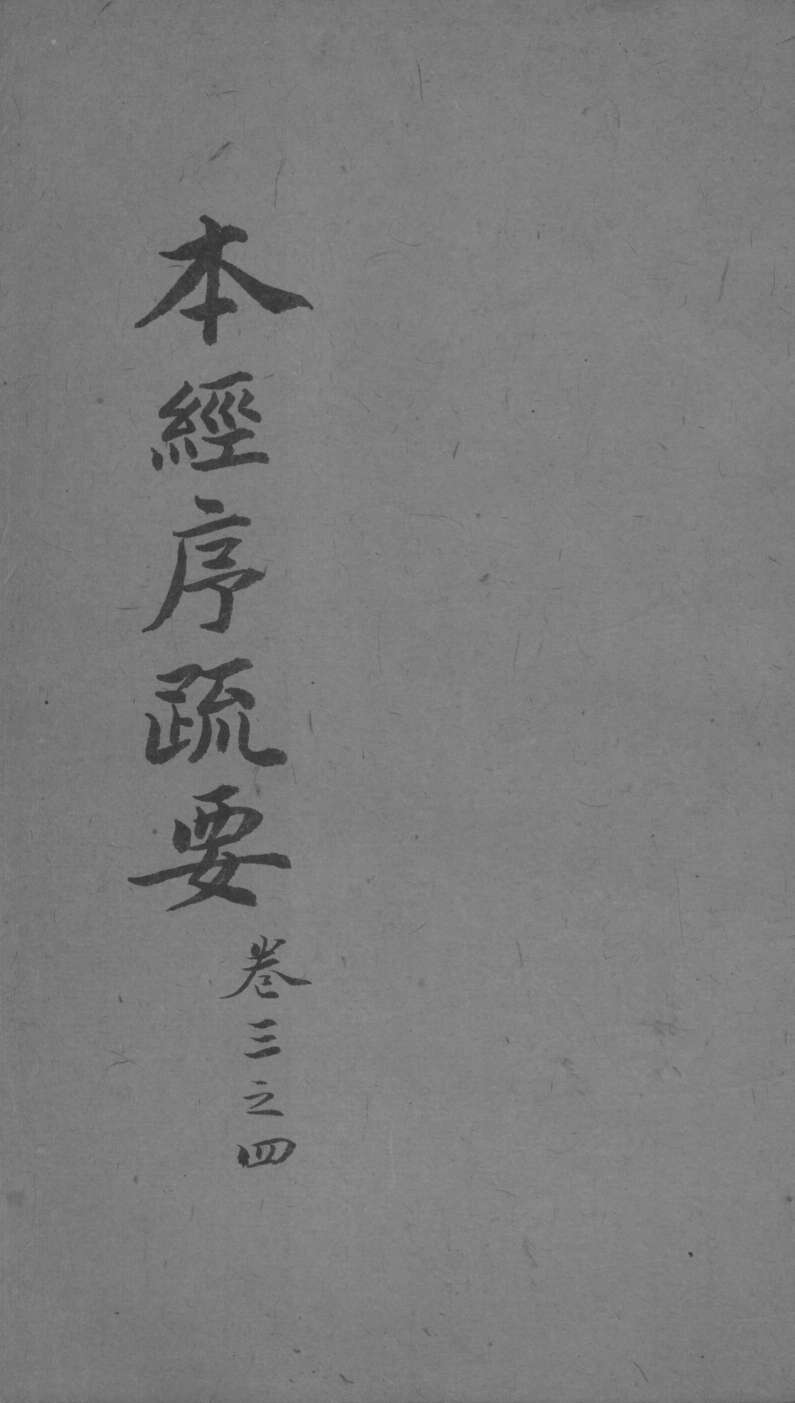 本經序疏要
卷三之四